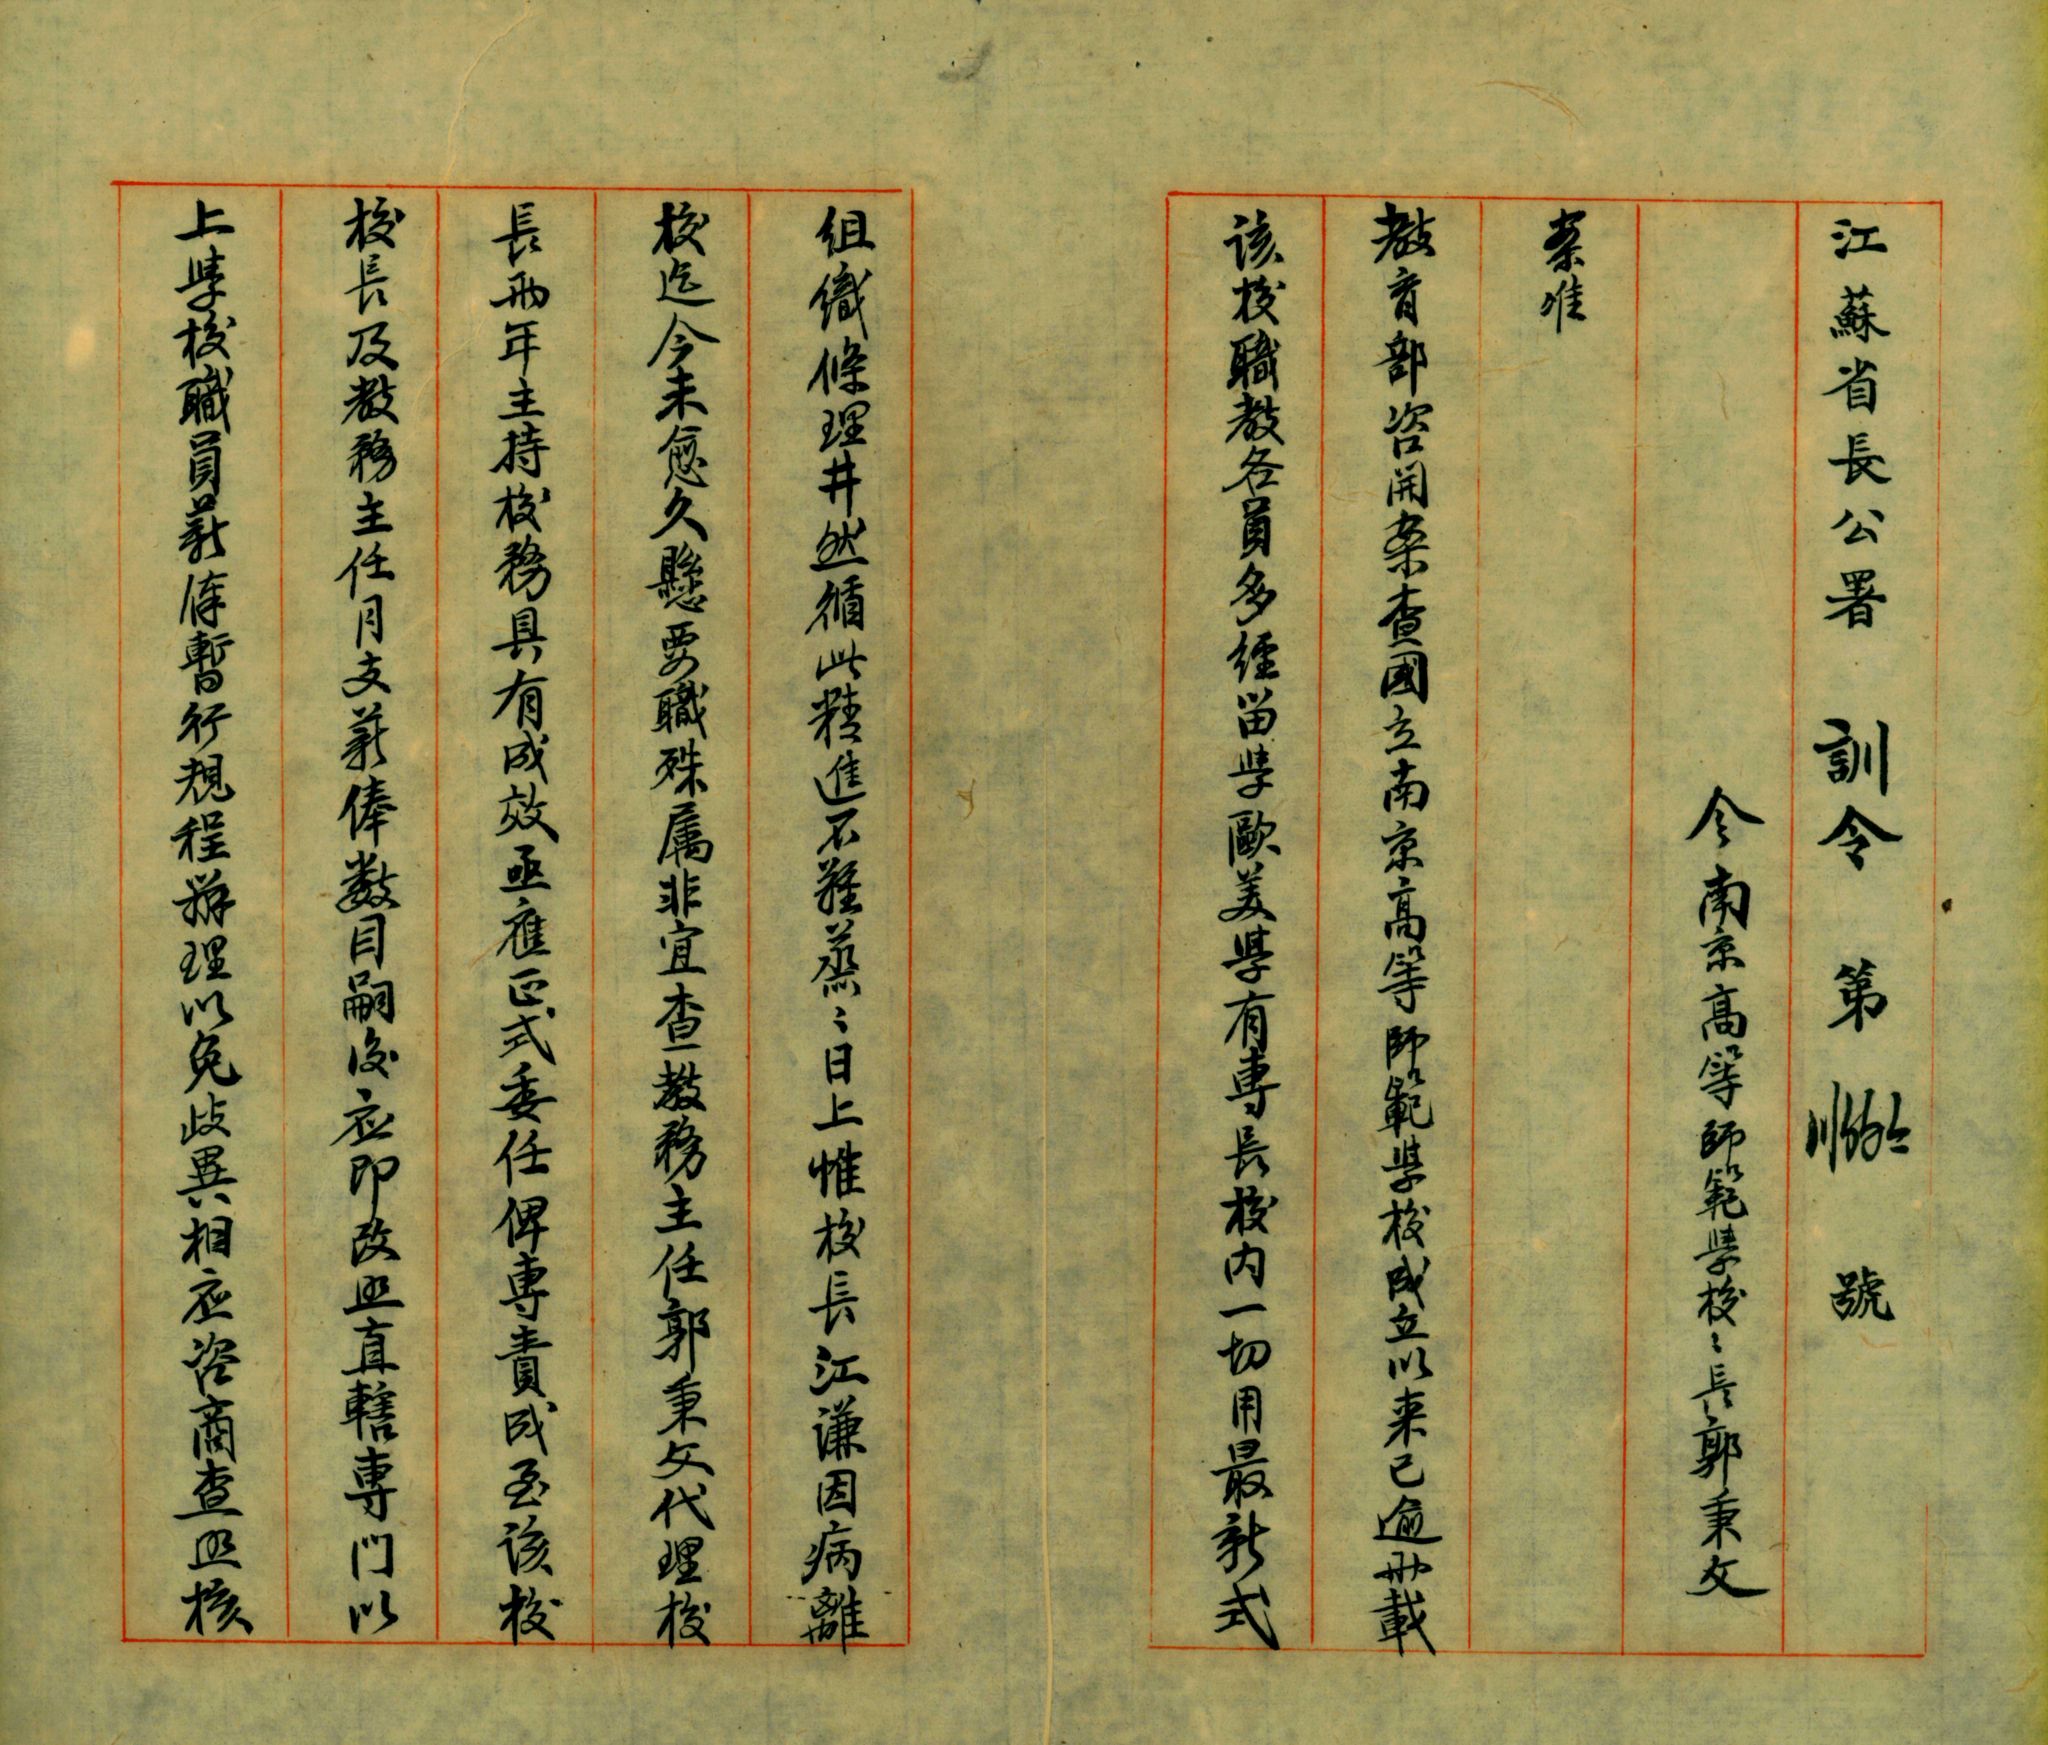 江蘇省長公署 訓令 第 號
令南京高等師範學校〻長郭秉文
案准
教育部咨開案查國立南京高等師範學校成立以来已逾兩載
該校職教各員多經留學歐美學有專長校内一切用最新式
組織條理井然循此精進不難蒸〻日上惟校長江謙因病離
校迄今未愈久懸要職殊属非宜查教務主任郭秉文代理校
長兩年主持校務具有成效亟應正式委任俾專責成至該校
校長及教務主任月支薪俸數目嗣後应即改照直轄專門以
上學校職員薪俸暫行規程辦理以免歧異相应咨商查照核